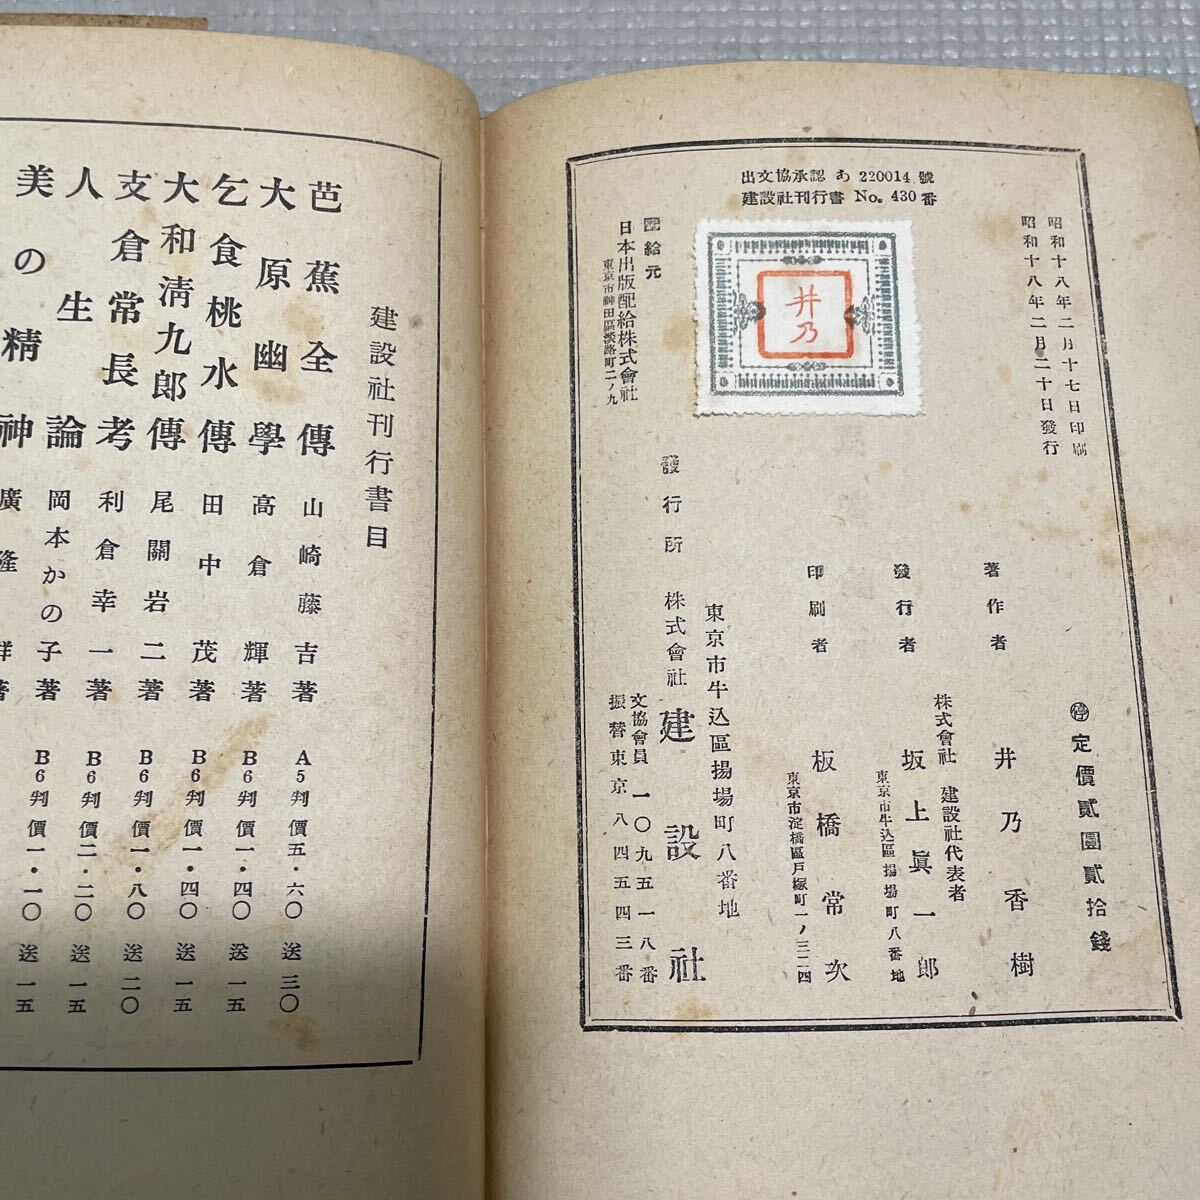 出文協承認 あ 220014 號
建設社刊行書 No. 430 番
昭和十八年二月十七日印刷
昭和十八年二月二十日發行
井乃
㊡定價貳圓貳拾錢
著作者 井乃香樹
株式會社 建設社代表者
發行者 坂上眞一郎
東京市牛込區揚場町八番地
印刷者 板橋常次
東京市淀橋區戸塚町一ノ三二四
東京市牛込區揚場町八番地
發行所 株式會社 建設社
文協會員一〇九五一八番
振替東京八四五四三番
給元
日本出版配給株式會社
東京市神田區淡路町二ノ九
建設社刊行書目
芭蕉全傳 山崎藤吉著 A5判 價五・六〇 送三〇
大原幽學 高倉輝著 B6判 價一・四〇 送一五
乞食桃水傳 田中茂著 B6判 價一・四〇 送一五
大和淸九郎傳 尾關岩二著 B6判 價一・八〇 送二〇
支倉常長考 利倉幸一著 B6判 價二・二〇 送一五
人生論 岡本かの子著 B6判 價一・一〇 送一五
美の精神 廣隆